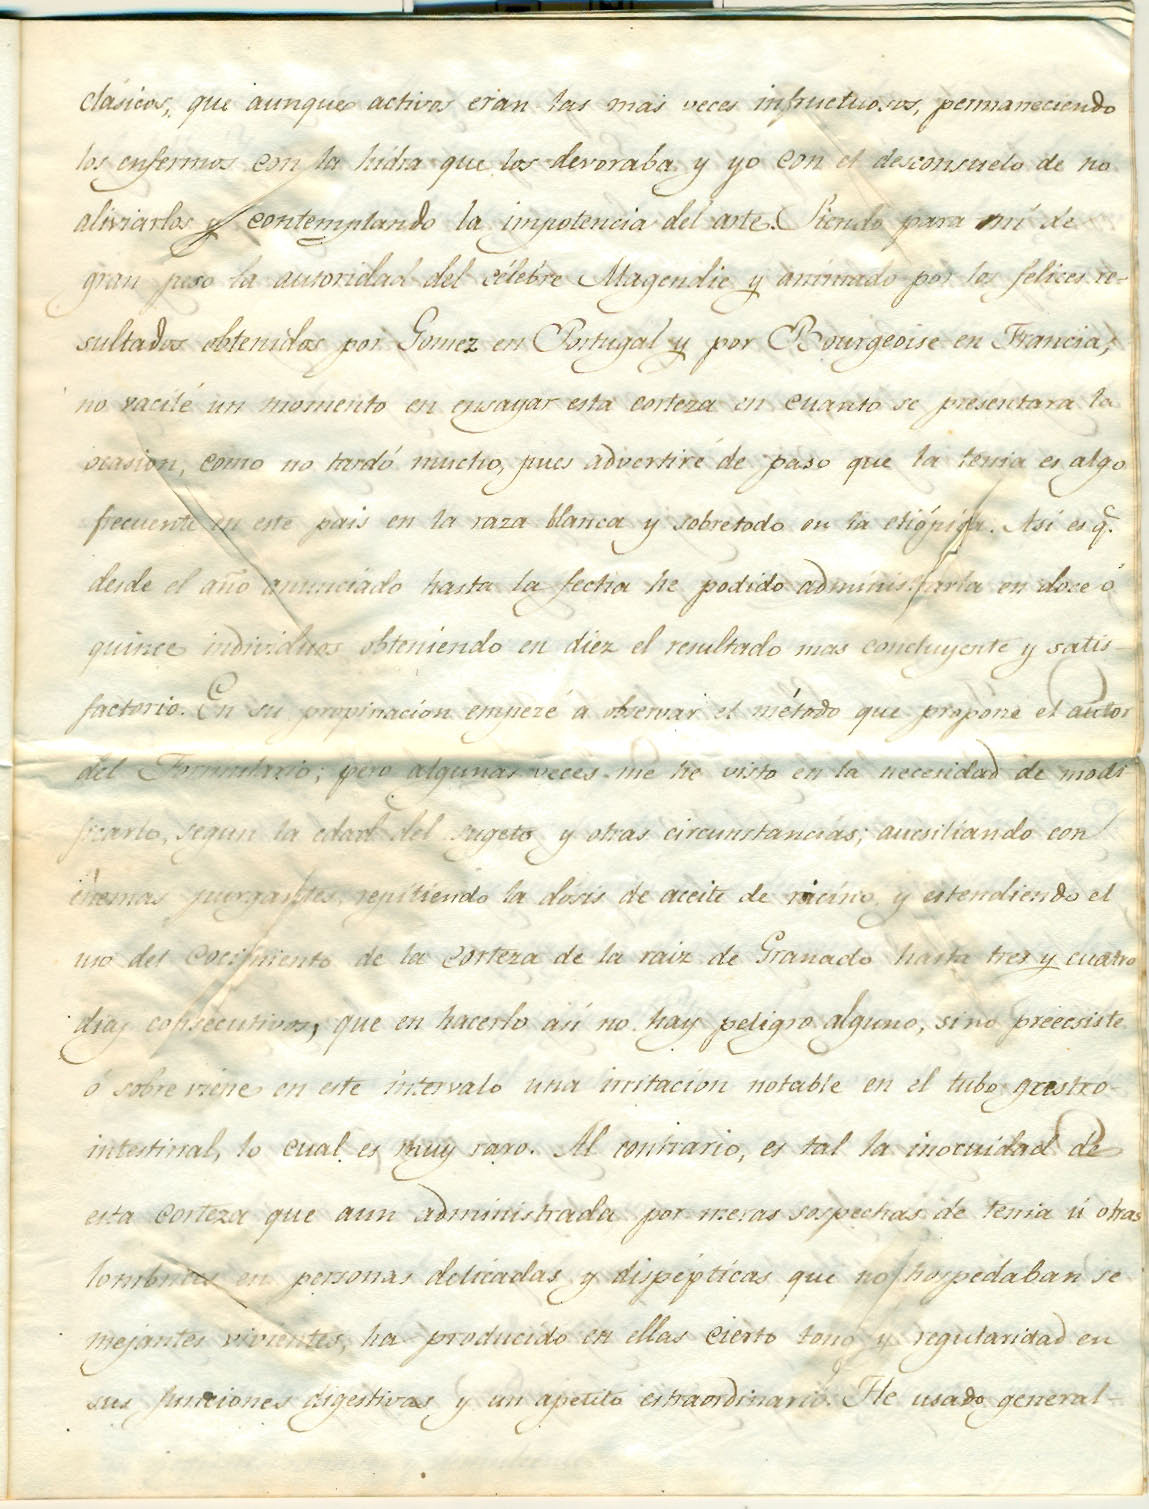 clásicos, que aunque activos eran las mas veces infructuosos, permaneciendo
los enfermos con la hidra que los devoraba y yo con el desconsuelo de no
aliviarlos y contemplando la impotencia del arte. Siendo para mí de
gran peso la autoridad del célebre Magendie y animado por los felices re-
sultados obtenidos por Gomez en Portugal y por Bourgeoise en Francia,
no vacilé un momento en ensayar esta corteza en cuanto se presentara la
ocasion, como no tardó mucho, pues advertiré de paso que la tenia es algo
frecuente en este pais en la raza blanca y sobretodo en la etiópica. Así es q.
desde el año anunciado hasta la fecha he podido administrarla en doce ó
quince individuos obteniendo en diez el resultado mas concluyente y satis-
factorio. En su propinacion empezé á observar el método que propone el autor
del Formulario; pero algunas veces me he visto en la necesidad de modi
ficarlo, segun la edad del sugeto y otras circunstancias; aucsiliando con
enemas purgantes, repitiendo la dosis de aceite de ricino, y estendiendo el
uso del cocimiento de la corteza de la raiz de Granado hasta tres y cuatro
dias consecutivos, que en hacerlo así no hay peligro alguno, sino preecsiste
ó sobreviene en este intervalo una irritacion notable en el tubo gastro-
intestinal, lo cual es muy raro. Al contrario, es tal la inocuidad de
esta corteza que aun administrada por meras sospechas de tenia ú otras
lombrices en personas delicadas y dispépticas que no hospedaban se
mejantes vivientes, ha producido en ellas cierto tono y regularidad en
sus funciones digestivas y un apetito estraordinario. He usado general-